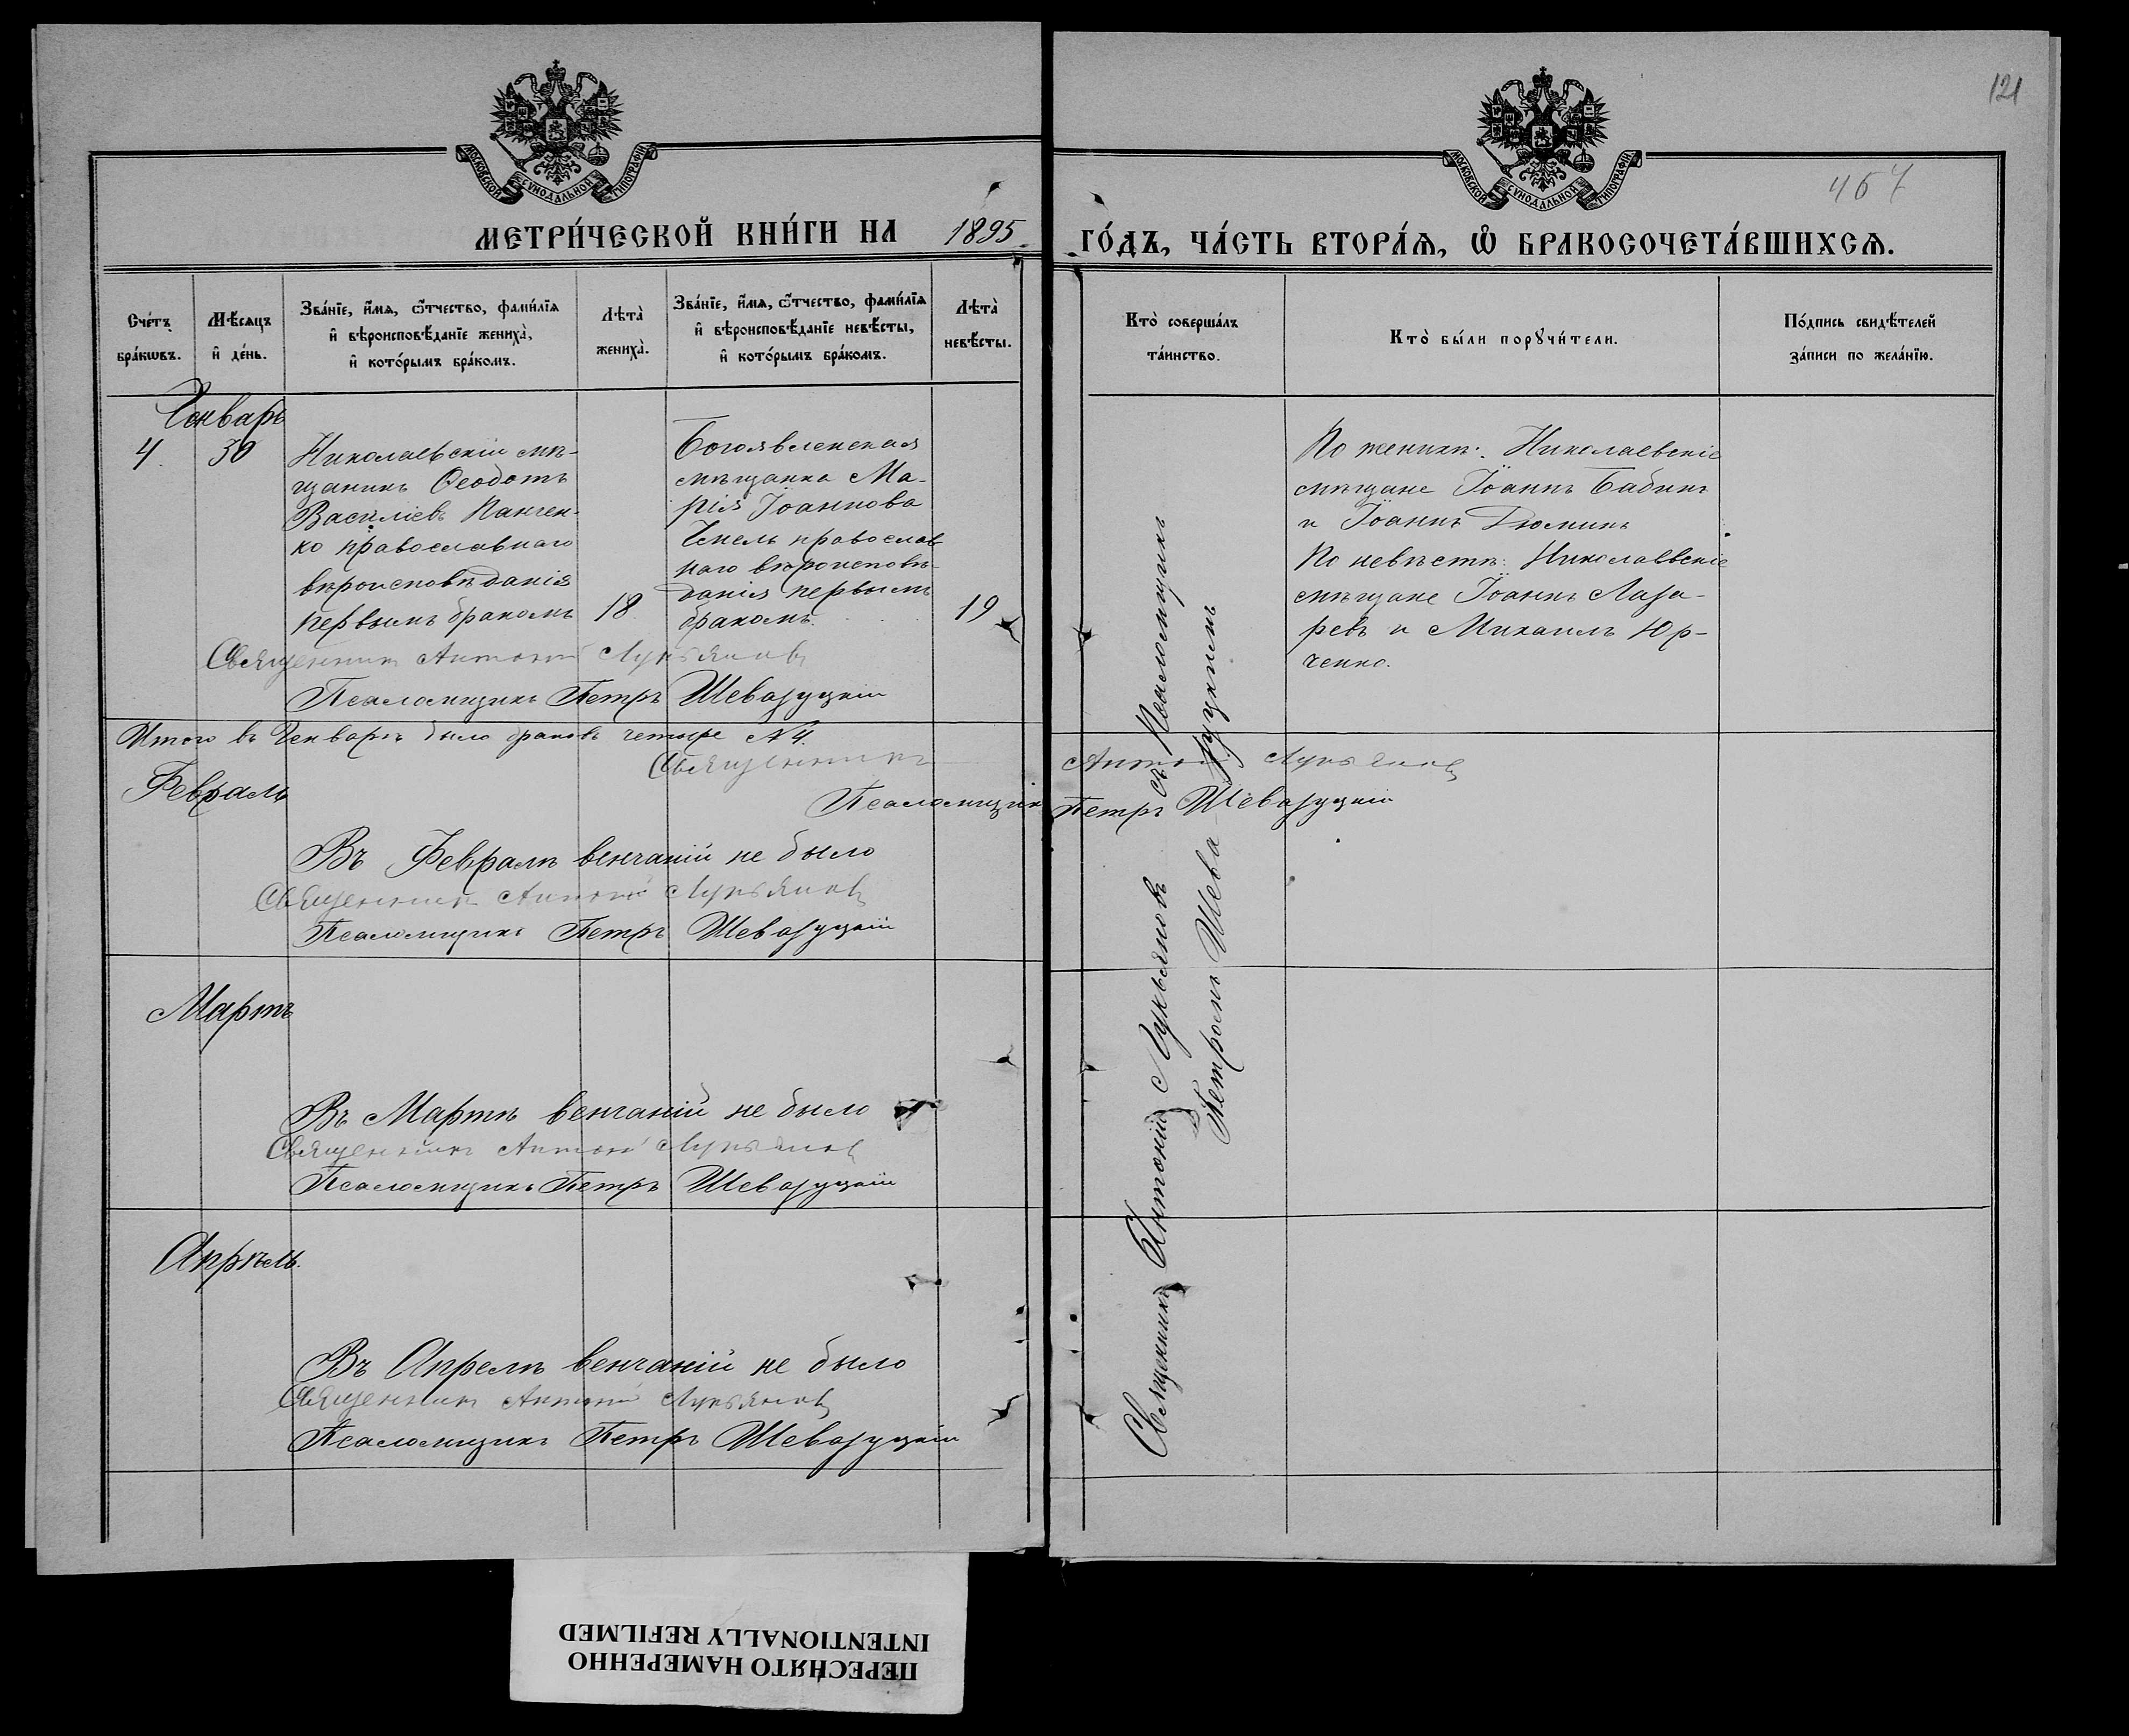 121
467
МОСКОВСКОЙ СѴНОДАЛЬНОЙ ТИПОГРАФІИ
МОСКОВСКОЙ СѴНОДАЛЬНОЙ ТИПОГРАФІИ
МЕТРИ́ЧЕСКОЙ КНИ́ГИ НА 1895 ГО́ДЪ, ЧА́СТЬ ВТОРА́Я, Ѡ БРАКОСОЧЕТА́ВШИХСЯ.
Сче́тъ
бра́кѡвъ.
Мѣ́сяцъ
и҆ де́нь.
Зва́нїе, и҆́мя, ѻ҆́тчество, фами́лїя
и҆ вѣроисповѣ́данїе жениха̀,
и҆ кото́рымъ бра́комъ.
Лѣта̀
жениха̀.
Зва́нїе, и҆́мя, ѻ҆́тчество, фами́лїя
и҆ вѣроисповѣ́данїе невѣ́сты,
и҆ кото́рымъ бра́комъ.
Лѣта̀
невѣ́сты.
Кто̀ соверша́лъ
та́инство.
Кто̀ бы́ли порꙋчи́тели.
По́дпись свидѣ́телей
за́писи по жела́нїю.
Генварь
4. 30
Николаевскій мѣ-
щанинъ Ѳеодотъ
Василіевъ Панчен-
ко православнаго
вѣроисповѣданія
первымъ бракомъ
18
Богоявленская
мѣщанка Ма-
рія Іоаннова
православ
наго вѣроисповѣ-
данія первымъ
бракомъ.
19
Священникъ Антоній Лукьяновъ
Псаломщикъ Петръ Шеваруцкій
Священникъ Антоній Лукьяновъ съ Псаломщикомъ
Петромъ Шеваруцкимъ
По женихѣ: Николаевскіе
мѣщане Іоаннъ Бабинъ
и Іоаннъ Дюминъ
По невѣстѣ: Николаевскіе
мѣщане Іоаннъ Лаза-
ревъ и Михаилъ Юр-
ченко.
Итого въ Генварѣ было браковъ четыре N 4.
Священникъ Антоній Лукьяновъ
Псаломщикъ Петръ Шеваруцкій
Февраль
Въ Февралѣ венчаній не было
Священникъ Антоній Лукьяновъ
Псаломщикъ Петръ Шеваруцкій
Мартъ
Въ Мартѣ венчаній не было
Священникъ Антоній Лукьяновъ
Псаломщикъ Петръ Шеваруцкій
Апрѣль.
Въ Апрелѣ венчаній не было
Священникъ Антоній Лукьяновъ
Псаломщикъ Петръ Шеваруцкій
ПЕРЕСНЯТО НАМЕРЕННО
INTENTIONALLY REFILMED